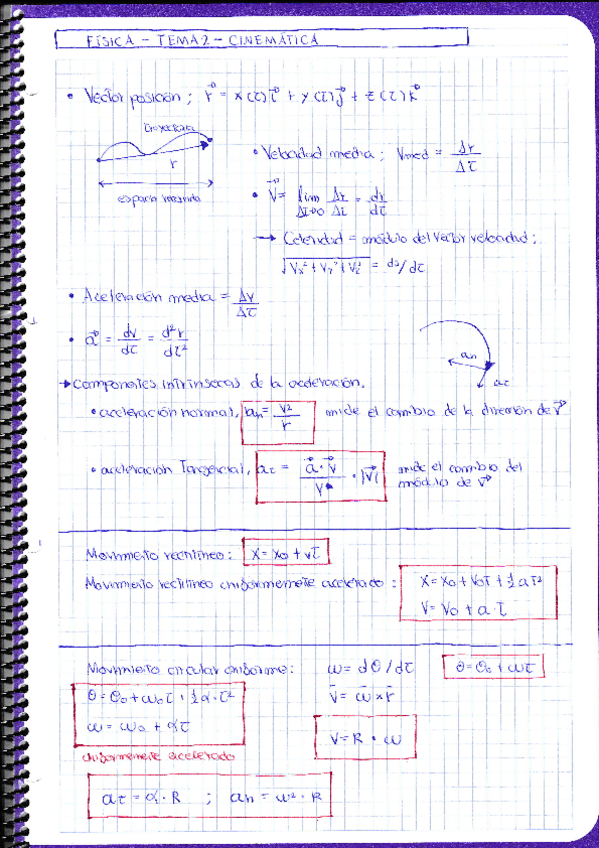 FÍSICA - TEMA 2 - CINEMÁTICA
• Vector posición; r⃗ = x(t)i⃗ + y(t)j⃗ + z(t)k⃗
trayectoria
r
espacio recorrido
• Velocidad media; Vmed = Δr/Δt
• V⃗ = lim Δt→0 Δr/Δt = dr/dt
→ Celeridad = módulo del vector velocidad;
√(Vx² + Vy² + Vz²) = ds/dt
• Aceleración media = Δv/Δt
• a⃗ = dv/dt = d²r/dt²
an
at
→ componentes intrínsecas de la aceleración.
• aceleración normal, an = v²/r mide el cambio de la dirección de v⃗
• aceleración Tangencial, at = a⃗·v⃗/v · |v⃗| mide el cambio del
módulo de v⃗
Movimiento rectilíneo: x = x0 + vt
Movimiento rectilíneo uniformemente acelerado: x = x0 + v0t + ½at²
v = v0 + a·t
Movimiento circular uniforme: ω = dθ/dt θ = θ0 + ωt
θ = θ0 + ω0t + ½α·t² v⃗ = ω⃗ × r⃗
ω = ω0 + αt
V = R · ω
uniformemente acelerado
at = α · R ; an = ω² · R